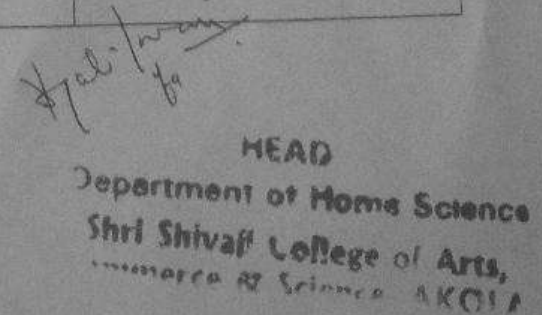 HEAD
Department of Home Science
Shri Shivaji College of Arts,
Commerce & Science AKOLA